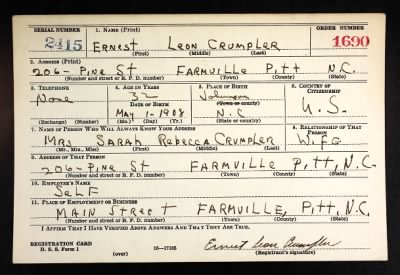 SERIAL NUMBER 1. NAME (Print) ORDER NUMBER
2415 ERNEST LEON CRUMPLER 1690
(First) (Middle) (Last)
2. ADDRESS (Print)
206- Pine St FARMVILLE Pitt N.C.
(Number and street or R. F. D. number) (Town) (County) (State)
3. TELEPHONE 4. AGE IN YEARS 5. PLACE OF BIRTH 6. COUNTRY OF CITIZENSHIP
None 32 Johnson
DATE OF BIRTH (Town or county)
MAY 1- 1908 N.C U.S.
(Exchange) (Number) (Mo.) (Day) (Yr.) (State or country)
7. NAME OF PERSON WHO WILL ALWAYS KNOW YOUR ADDRESS 8. RELATIONSHIP OF THAT PERSON
MRS SARAH REBECCA CRUMPLER WIFE
(Mr., Mrs., Miss) (First) (Middle) (Last)
9. ADDRESS OF THAT PERSON
206- Pine St FARMVILLE Pitt, N.C.
(Number and street or R. F. D. number) (Town) (County) (State)
10. EMPLOYER'S NAME
SELF
11. PLACE OF EMPLOYMENT OR BUSINESS
MAIN Street FARMVILLE, Pitt, N.C.
(Number and street or R. F. D. number) (Town) (County) (State)
I AFFIRM THAT I HAVE VERIFIED ABOVE ANSWERS AND THAT THEY ARE TRUE.
REGISTRATION CARD
D. S. S. Form 1 16-17105 Ernest Leon Crumpler
(over) (Registrant's signature)